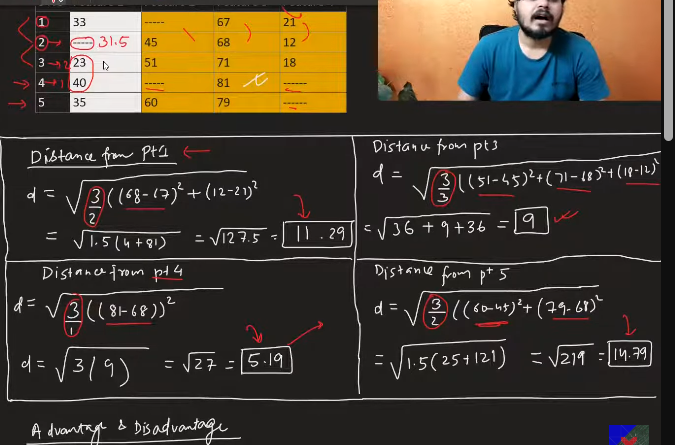 1 33 ----- 67 21
2 → ----- 31.5 45 68 12
3 → 2 23 51 71 18
→ 4 → 1 40 ----- 81 -----
→ 5 35 60 79 -----
Distance from Pt1 ←
d = √3/2((68-67)²+(12-21)²
= √1.5(4+81) = √127.5 = 11.29
Distance from pt3
d = √3/3((51-45)²+(71-68)²+(18-12)²
= √36+9+36 = 9
Distance from pt4
d = √3/1((81-68))²
d = √3(9) = √27 = 5.19
Distance from pt 5
d = √3/2((60-45)²+(79-68)²
= √1.5(25+121) = √219 = 14.79
Advantage & Disadvantage